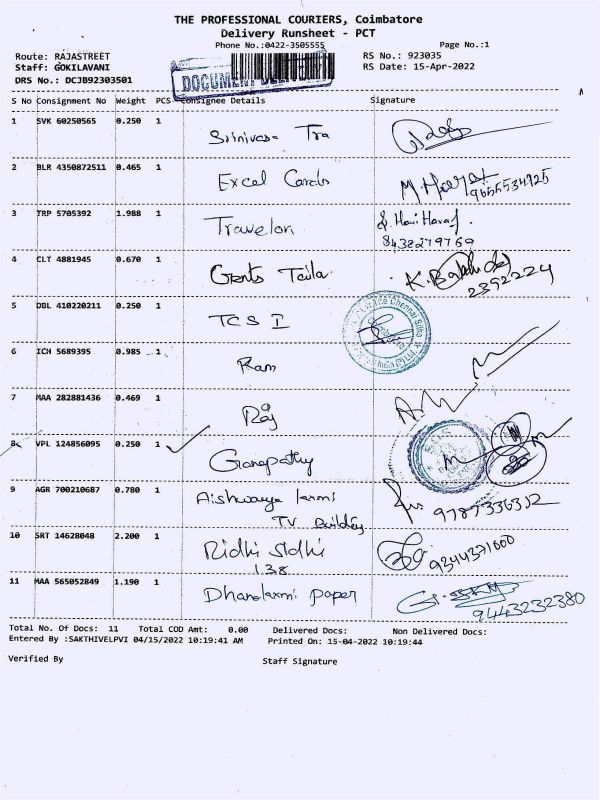 THE PROFESSIONAL COURIERS, Coimbatore
Delivery Runsheet - PCT
Phone No.:0422-3505555 Page No.:1
Route: RAJASTREET RS No.: 923035
Staff: GOKILAVANI RS Date: 15-Apr-2022
DRS No.: DCJB92303501
DOCUMENT
S No Consignment No Weight PCS Consignee Details Signature
1 SVK 60250565 0.250 1
Srinivasa Tra
2 BLR 4350872511 0.465 1
Excel Cards
9655534925
3 TRP 5705392 1.988 1
Travelon
8438279769
4 CLT 4881945 0.670 1
Gents Taila
2392224
5 DBL 410220211 0.250 1
TCS I
The Chennai Silks
6 ICH 5689395 0.985 1
Ram
7 MAA 282881436 0.469 1
Raj
8 VPL 124856095 0.250 1
Ganapathy
9 AGR 700210687 0.780 1
Aishwarya laxmi
TV Building
9787336312
10 SRT 14628048 2.200 1
Ridhi Sidhi
138
9344371600
11 MAA 565052849 1.190 1
Dhanalaxmi paper
9443232380
Total No. Of Docs: 11 Total COD Amt: 0.00 Delivered Docs: Non Delivered Docs:
Entered By :SAKTHIVELPVI 04/15/2022 10:19:41 AM Printed On: 15-04-2022 10:19:44
Verified By Staff Signature